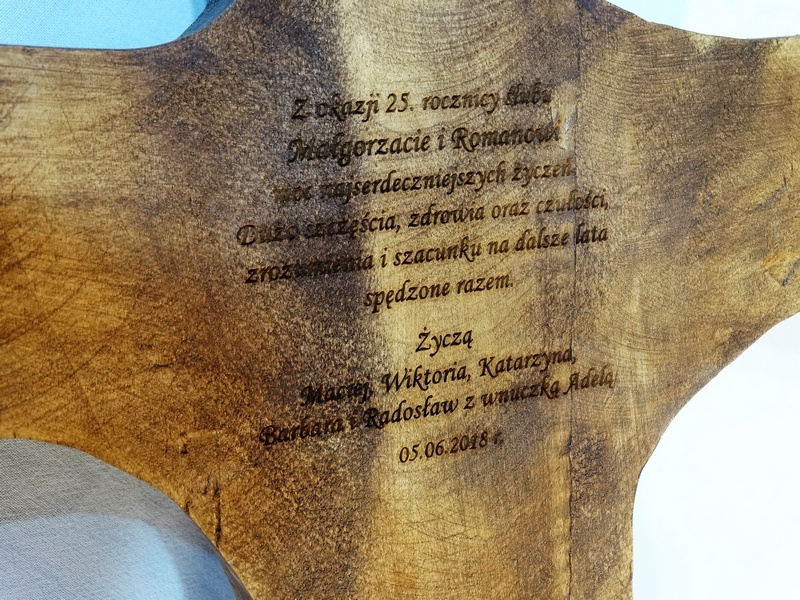 Z okazji 25. rocznicy ślubu
Małgorzacie i Romanowi
moc najserdeczniejszych życzeń.
Dużo szczęścia, zdrowia oraz czułości,
zrozumienia i szacunku na dalsze lata
spędzone razem.
Życzą
Maciej, Wiktoria, Katarzyna,
Barbara i Radosław z wnuczką Adelą
05.06.2018 r.